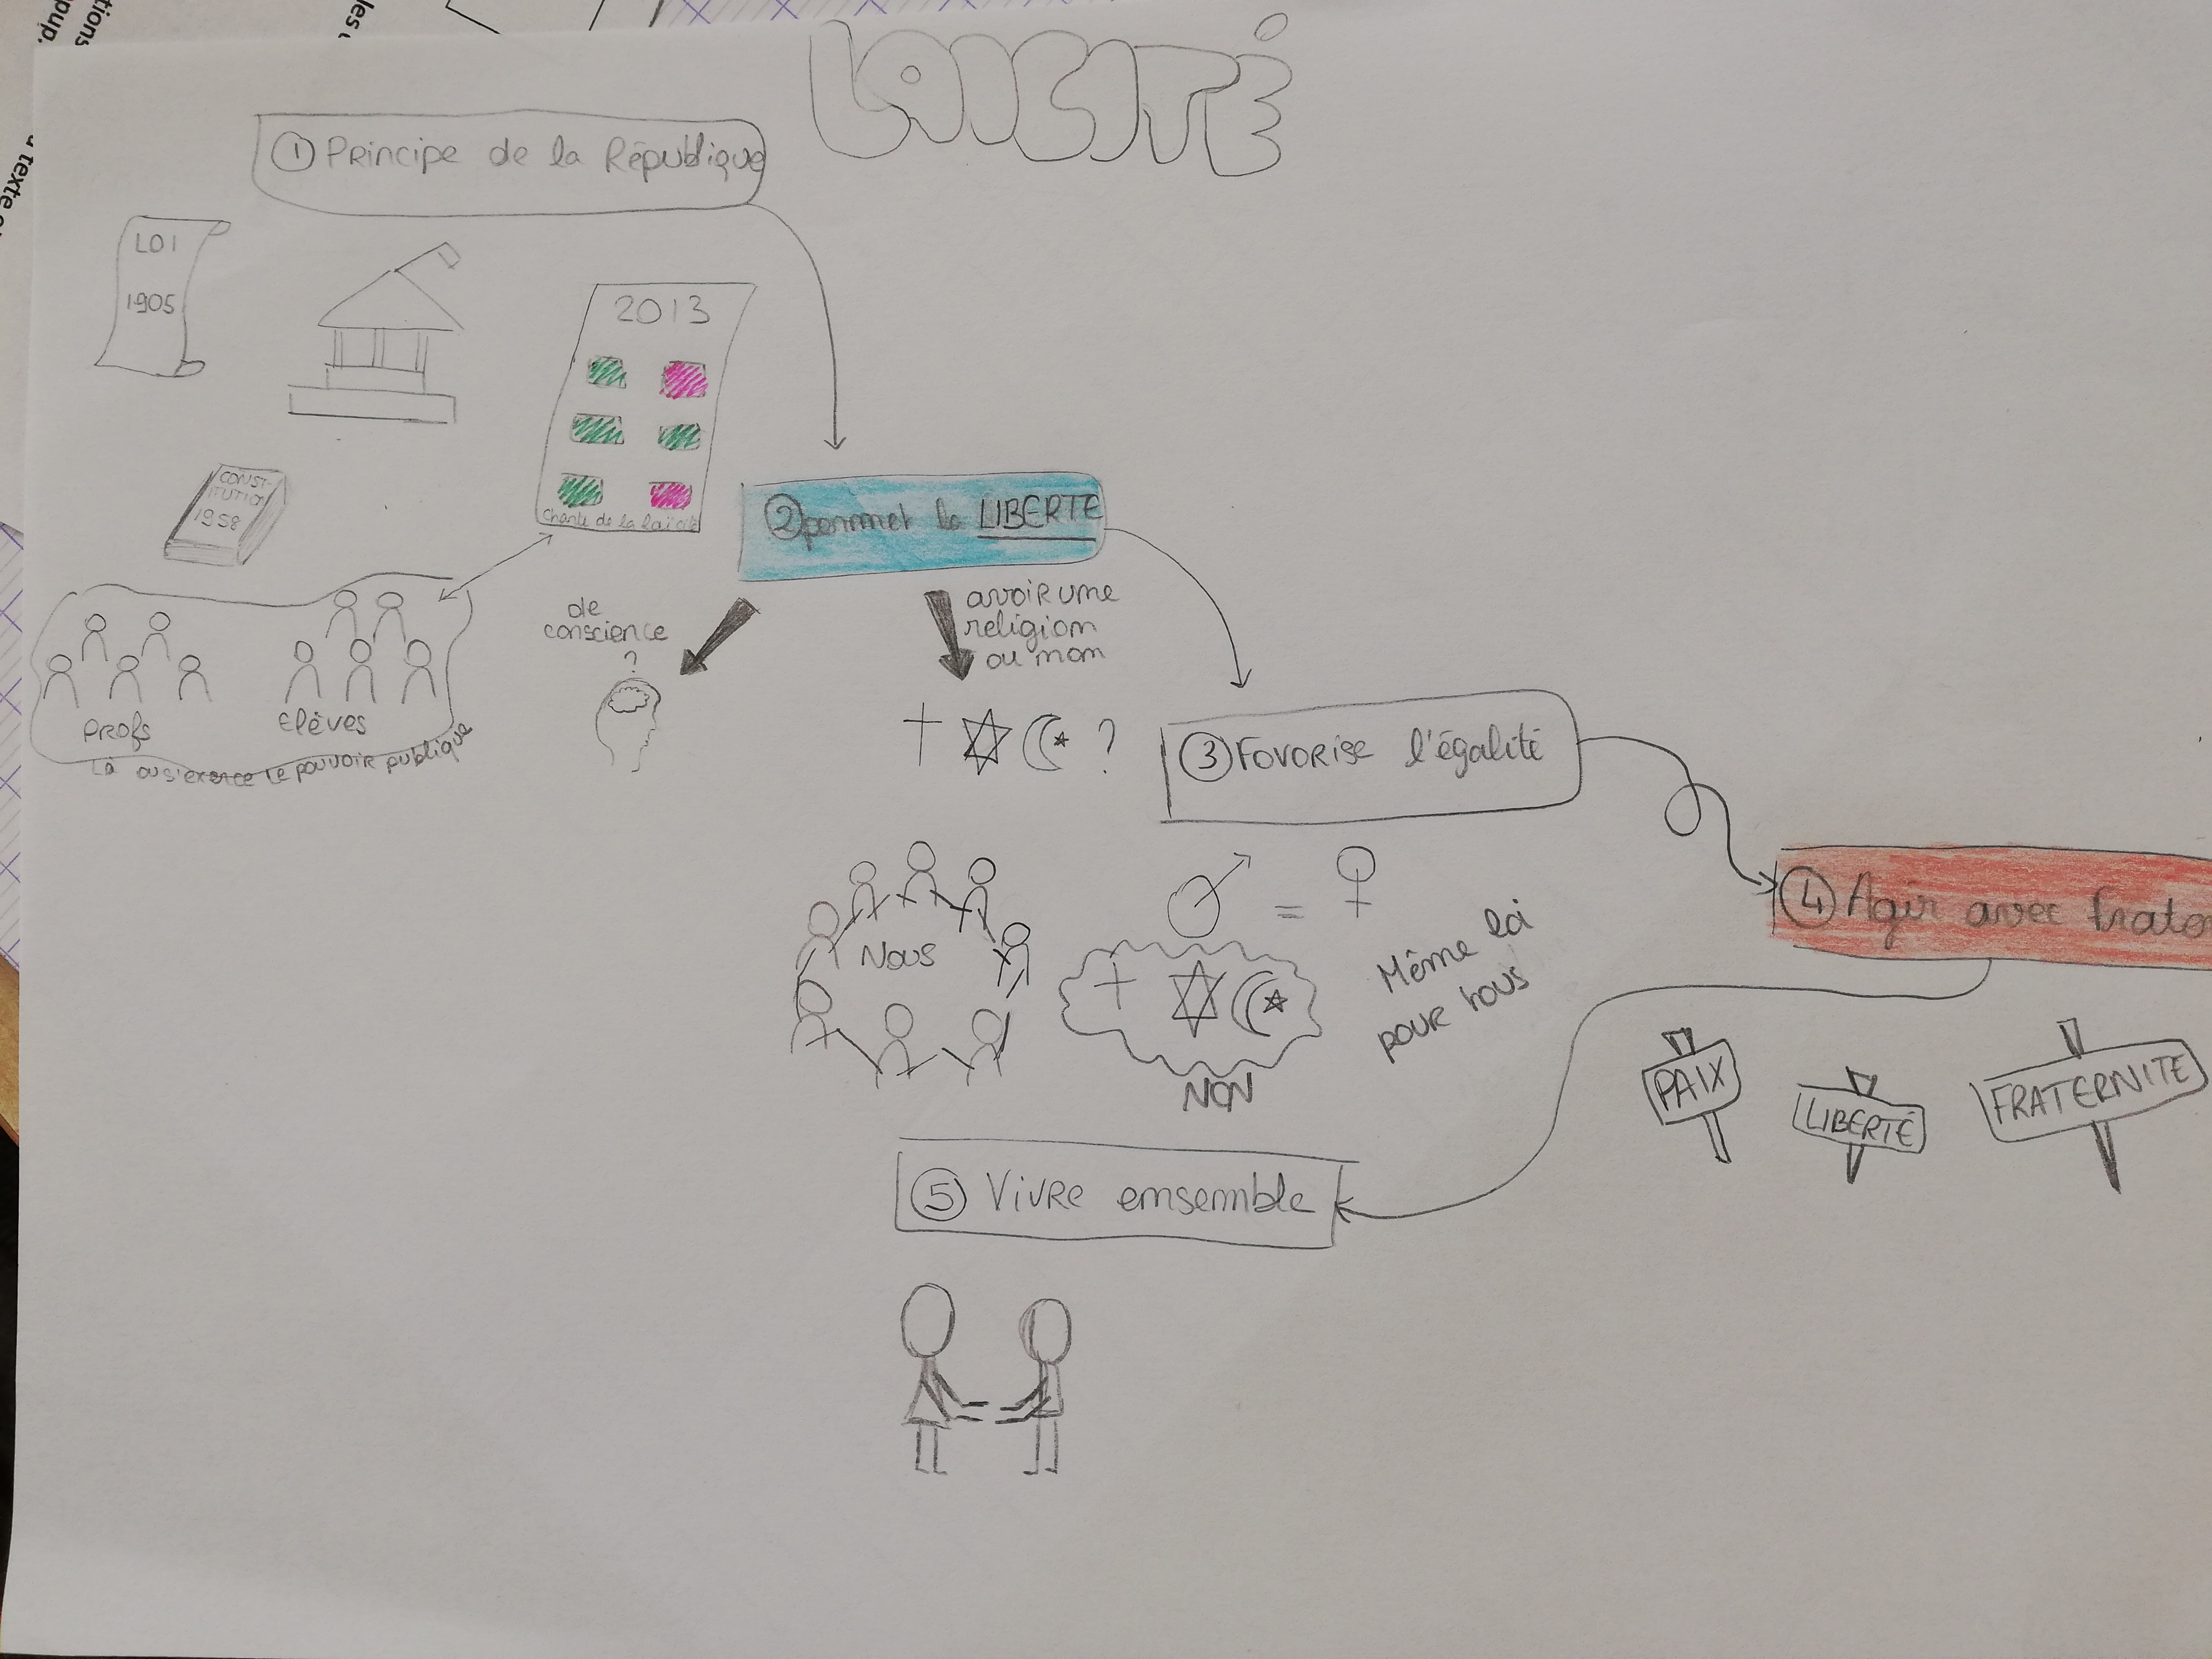 tions
pup.
les
texte
LAICITÉ
① Principe de la République
LOI
1905
2013
Charte de la laïcité
CONST-
ITUTION
1958
② permet la LIBERTE
de
conscience
?
avoir une
religion
ou non
?
Profs
Elèves
Là où s'exerce le pouvoir publique
③ Favorise l'égalité
④ Agir avec frater
Nous
=
Même loi
pour tous
NON
PAIX
LIBERTÉ
FRATERNITE
⑤ Vivre ensemble